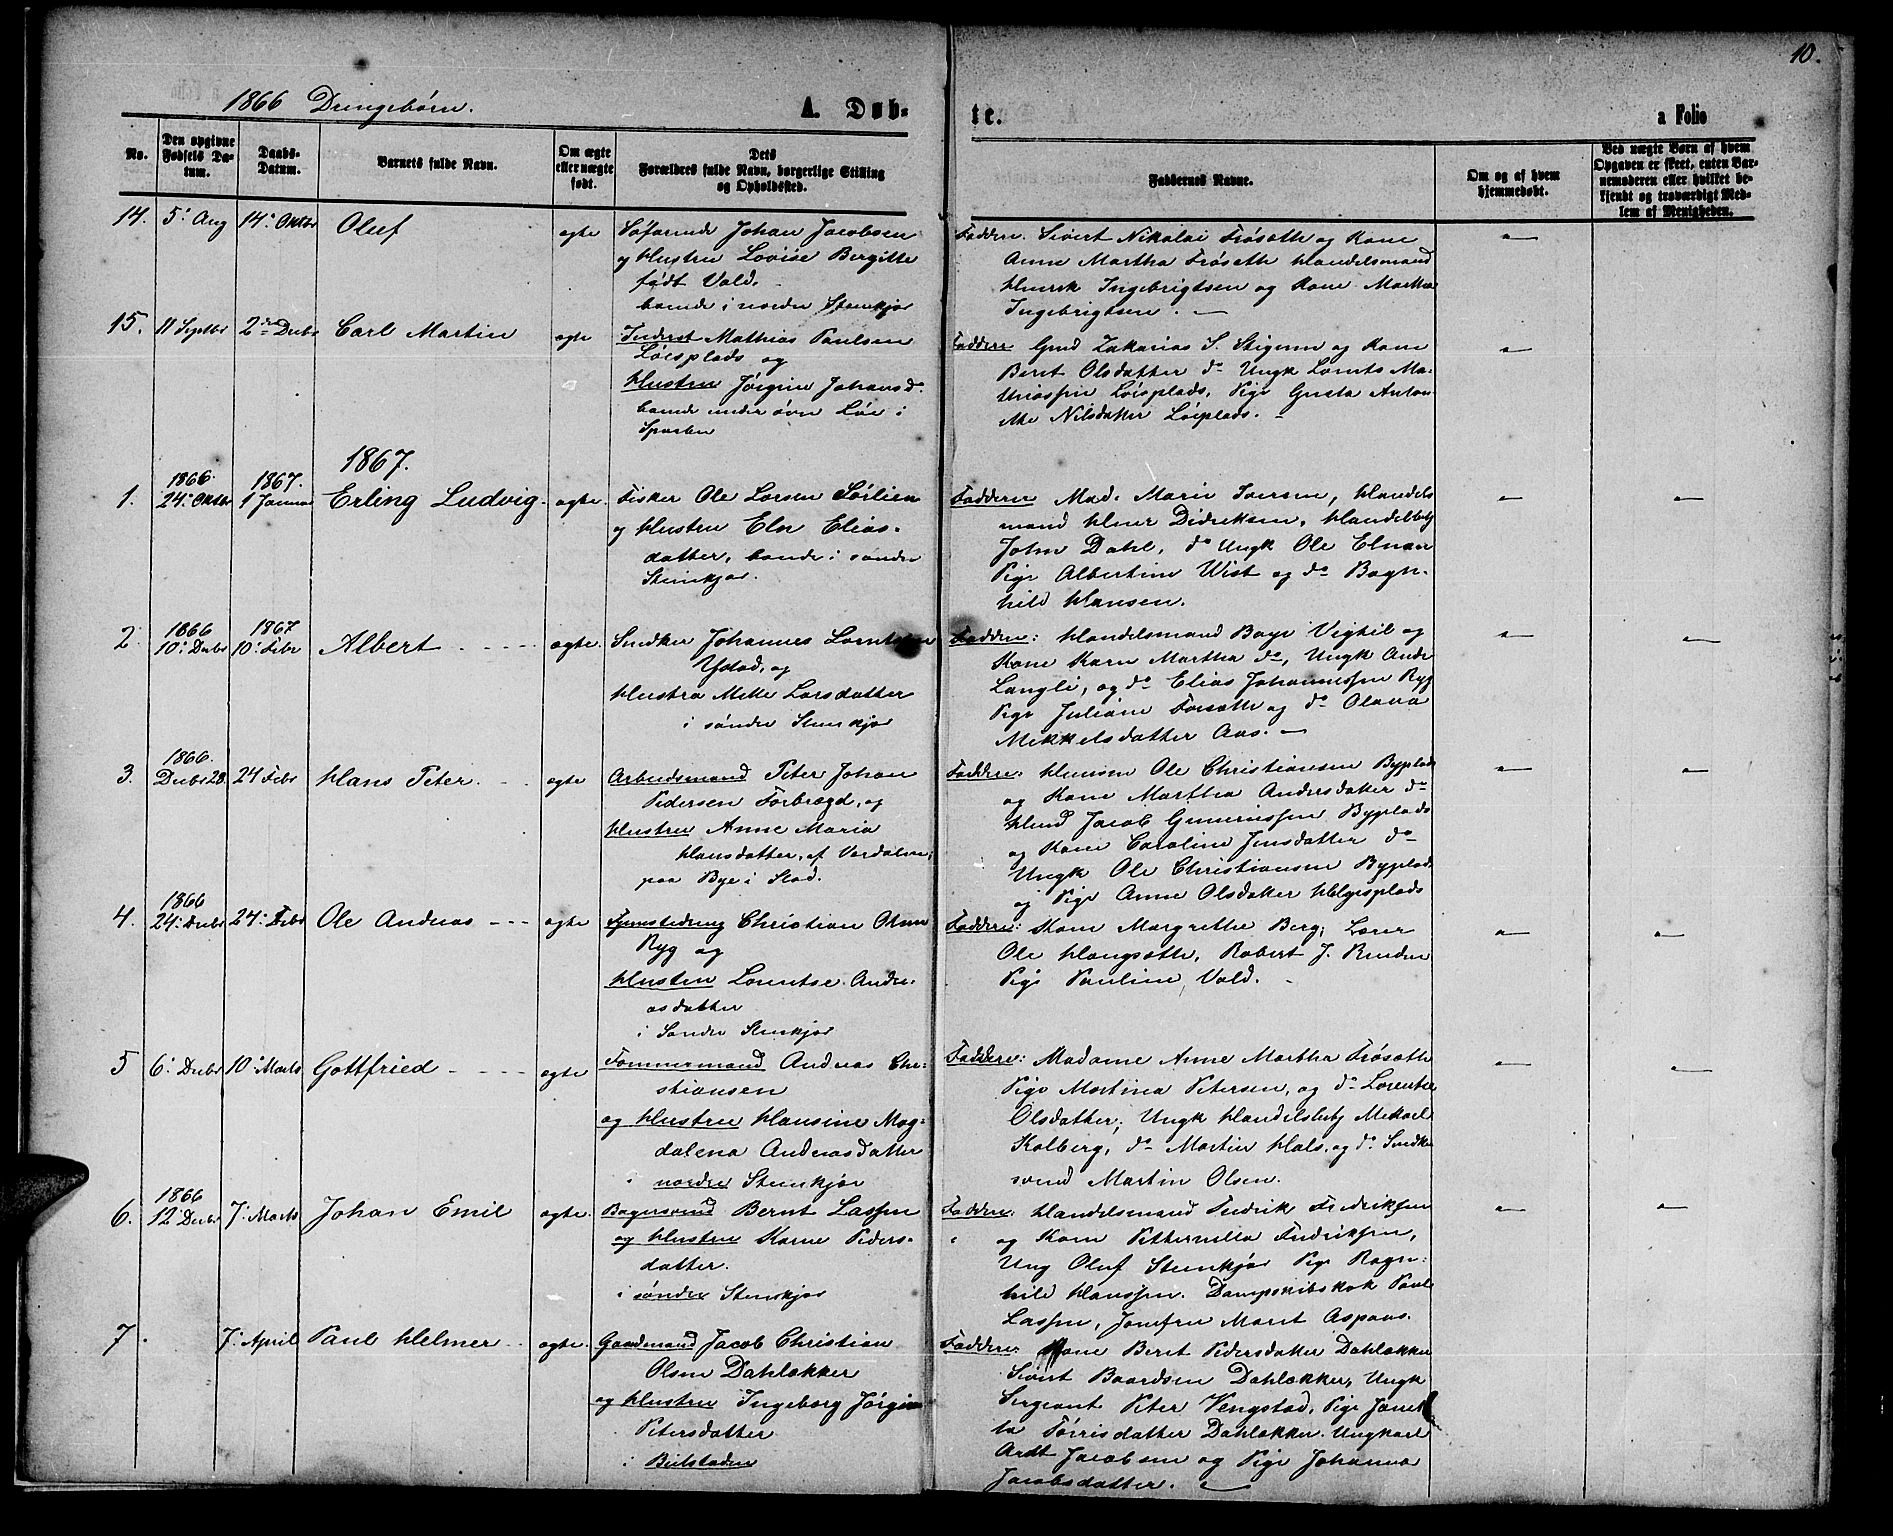 10.
1866 Drengebørn.
A. Døb-
te.
a Folio
No.
Den opgivne Fødsels Da-
tum.
Daabs-
Datum.
Barnets fulde Navn.
Om ægte
eller uægte
født.
Dets
Forældres fulde Navn, borgerlige Stilling
og Opholdssted.
Faddernes Navne.
Om og af hvem
hjemmedøbt.
Ved uægte Børn af hvem
Opgaven er skeet, enten Bar-
nemoderen eller hvilket be-
kjendt og troværdigt Med-
lem af Menigheden.
14. 5' Aug 14' Oktbr Oluf ægte
Søfarende Johan Jacobsen
og Hustru Lovise Bergitte
født Vold.
boende i nordre Stenkjær
Faddere. Sivert Nikolai Frøsæth og Kone
Anne Martha Frøsæth Handelsmand
Henrik Ingebrigtsen og Kone Martha
Ingebrigtsen. —
15. 11 Septbr 2den Decbr Carl Martin ægte
Inderst Mathias Paulsen
Løesplads og
Hustru Jørgine Johansd.
boende under øvre Løe i
Sparbu
Faddere Gmd Zakarias S. Stigum og Kone
Beret Olsdatter do Ungk Lornts Ma-
thiassen Løesplads, Pige Gusta Anton-
ette Nilsdatter Løeplads. —
1867.
1. 1866 24' Oktbr 1867. 1 Januar Erling Ludvig. ægte.
Fisker Ole Larsen Sørlien
og Hustru Eln Elias-
datter, boende i søndre
Stenkjær.
Faddere Mad. Marie Iversen, Handels
mand Didriksen, Handelsbetj
John Dahl, do Ungk Ole Elnan
Pige Albertine Wist og do Ragn-
hild Hansen.
2. 1866 10' Decbr 1867 10' Febr Albert ægte.
Snedker Johannes Lorntsen
Ystad, og
Hustru Mette Larsdatter
i søndre Stenkjær
Faddere: Handelsmand Vigtil og
Kone Karn Martha do, Ungk Andr
Langli, og do Elias Johannessen Ryg
Pige Juliane Forsæth og do Olava
Mekkelsdatter Aas. —
3. 1866. Decbr 28. 24 Febr Hans Peter. ægte
Arbeidsmand Peter Johan
Pedersen Forbregd, og
Hustru Anne Maria
Hansdatter, af Værdalen,
paa Bye i Stod.
Faddere: Husmd Ole Christiansen Byplads
og Kone Martha Andersdatter do
Husmd Jacob Gunneriussen Byplads
og Kone Caroline Jensdatter do
Ungk Ole Christiansen Byplads
og Pige Anne Olsdatter Helgesplads
4. 1866 24' Decbr 24' Febr Ole Andreas ægte
Christian Olsen
Ryg og
Hustru Lorntse Andre-
asdatter
i Søndre Stenkjær
Faddere: Kone Margrethe Berg, Lærer
Ole Haugsæth, Robert J. Rinden
Pige Pauline Vold.
5 6' Decbr 10' Marts Gottfried ægte
Tømmermand Andreas Chri-
stiansen
og Hustru Hansine Mag-
dalena Andreasdatter
i nordre Stenkjær
Faddere: Madame Anne Martha Frøsæth
Pige Martina Petersen, og do Lorentse
Olsdatter, Ungk Handelsbetj Mekael
Kolberg, do Martin Hals, og do Snedker
svend Martin Olsen.
6. 1866 12 Decbr 7' Marts Johan Emil ægte.
Bagersvend Bernt Lassen
og Hustru Karne Peders-
datter.
i søndre Stenkjær
Faddere: Handelsmand Fredrik Fredriksen
og Kone Petternella Fredriksen,
Ung Oluf Stenkjær Pige Ragn-
hild Hanssen. Dampskibskok Paul
Lassen, Jomfru Marit Aspaas.
7. 7' April Paul Helmer ægte.
Gaardmand Jacob Christian
Olsen Dahlækker
og Hustru Ingeborg Jørgine
Petersdatter
i Beitstaden
Faddere: Kone Beret Pedersdatter Dahlækker
Sivert Baardsen Dahlækker, Ungk
Sergeant Peter Vengstad, Pige Janet-
ta Tørrisdatter Dahlækker. Ungkarl
Ardt Jacobsen og Pige Johanna
Jacobsdatter. —